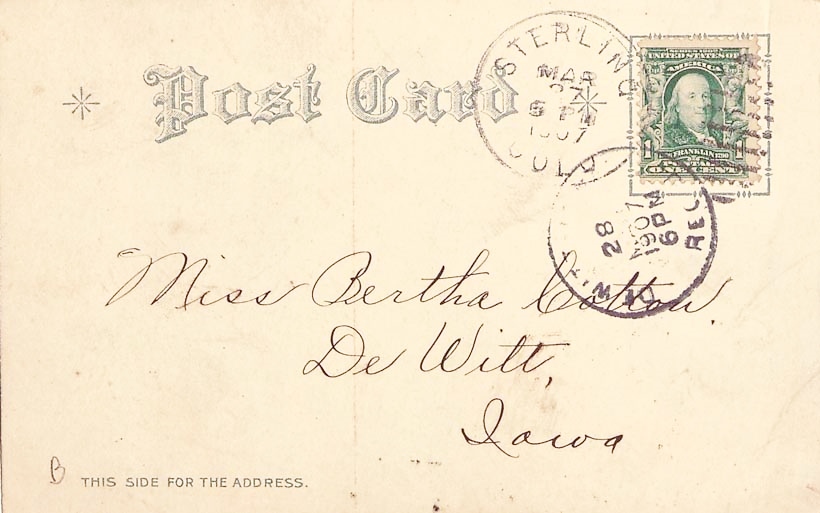 Post Card
STERLING
MAR
27
6 PM
1907
COLO
SERIES 1902
UNITED STATES OF
AMERICA
FRANKLIN
1 1
ONE CENT
28
1907
6 PM
REC'D
DE WITT
Miss Bertha Cotton
De Witt,
Iowa
B
THIS SIDE FOR THE ADDRESS.